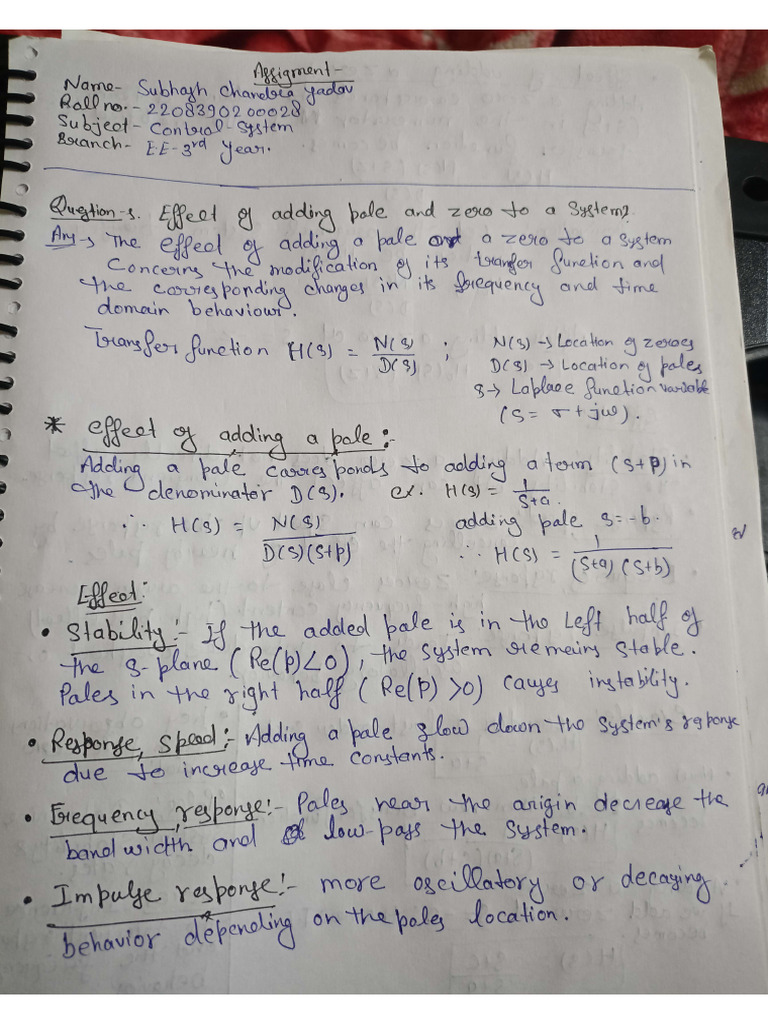 Assigment-
Name- Subhash Chandra yadav
Roll no.- 2208390200028
Subject- Control-System
Branch- E.E-3rd Year.
Question-s. Effect of adding pole and zero to a System?
Ans→ The effect of adding a pole or a zero to a System
Concerns the modification of its transfer function and
the corresponding changes in its frequency and time
domain behaviour.
Transfer function H(s) = N(s)/D(s) ; N(s) → Location of zeroes
D(s) → Location of poles
s → Laplace function variable
(S = σ + jω).
* effect of adding a pole:-
Adding a pole corresponds to adding a term (S+P) in
the denominator D(s). ex. H(s) = 1/S+a.
∴ H(s) = N(s)/D(s)(S+p) adding pole s=-b.
∴ H(s) = 1/(S+a)(S+b)
Effect:
• Stability:- If the added pole is in the Left half of
the s-plane (Re(p)<0), the system remains stable.
Poles in the right half (Re(p) >0) causes instability.
• Response, Speed:- Adding a pole slow down the System's response
due to increase time constants.
• Frequency, response:- Poles near the origin decrease the
bandwidth and low-pass the System.
• Impulse response:- more oscillatory or decaying
behavior depending on the poles location.